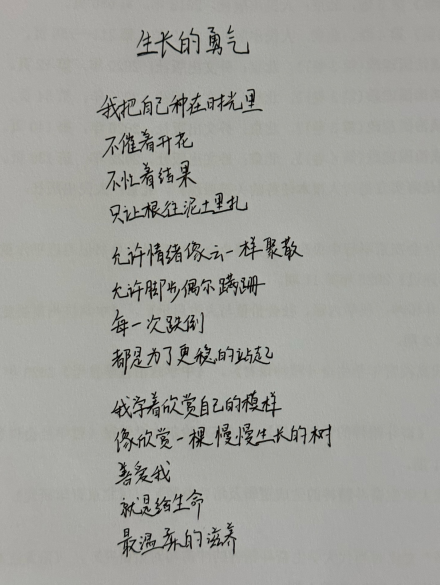 生长的勇气
我把自己种在时光里
不催着开花
不忙着结果
只让根往泥土里扎
允许情绪像云一样聚散
允许脚步偶尔蹒跚
每一次跌倒
都是为了更稳的站起
我学着欣赏自己的模样
像欣赏一棵慢慢生长的树
善爱我
就是给生命
最温柔的滋养